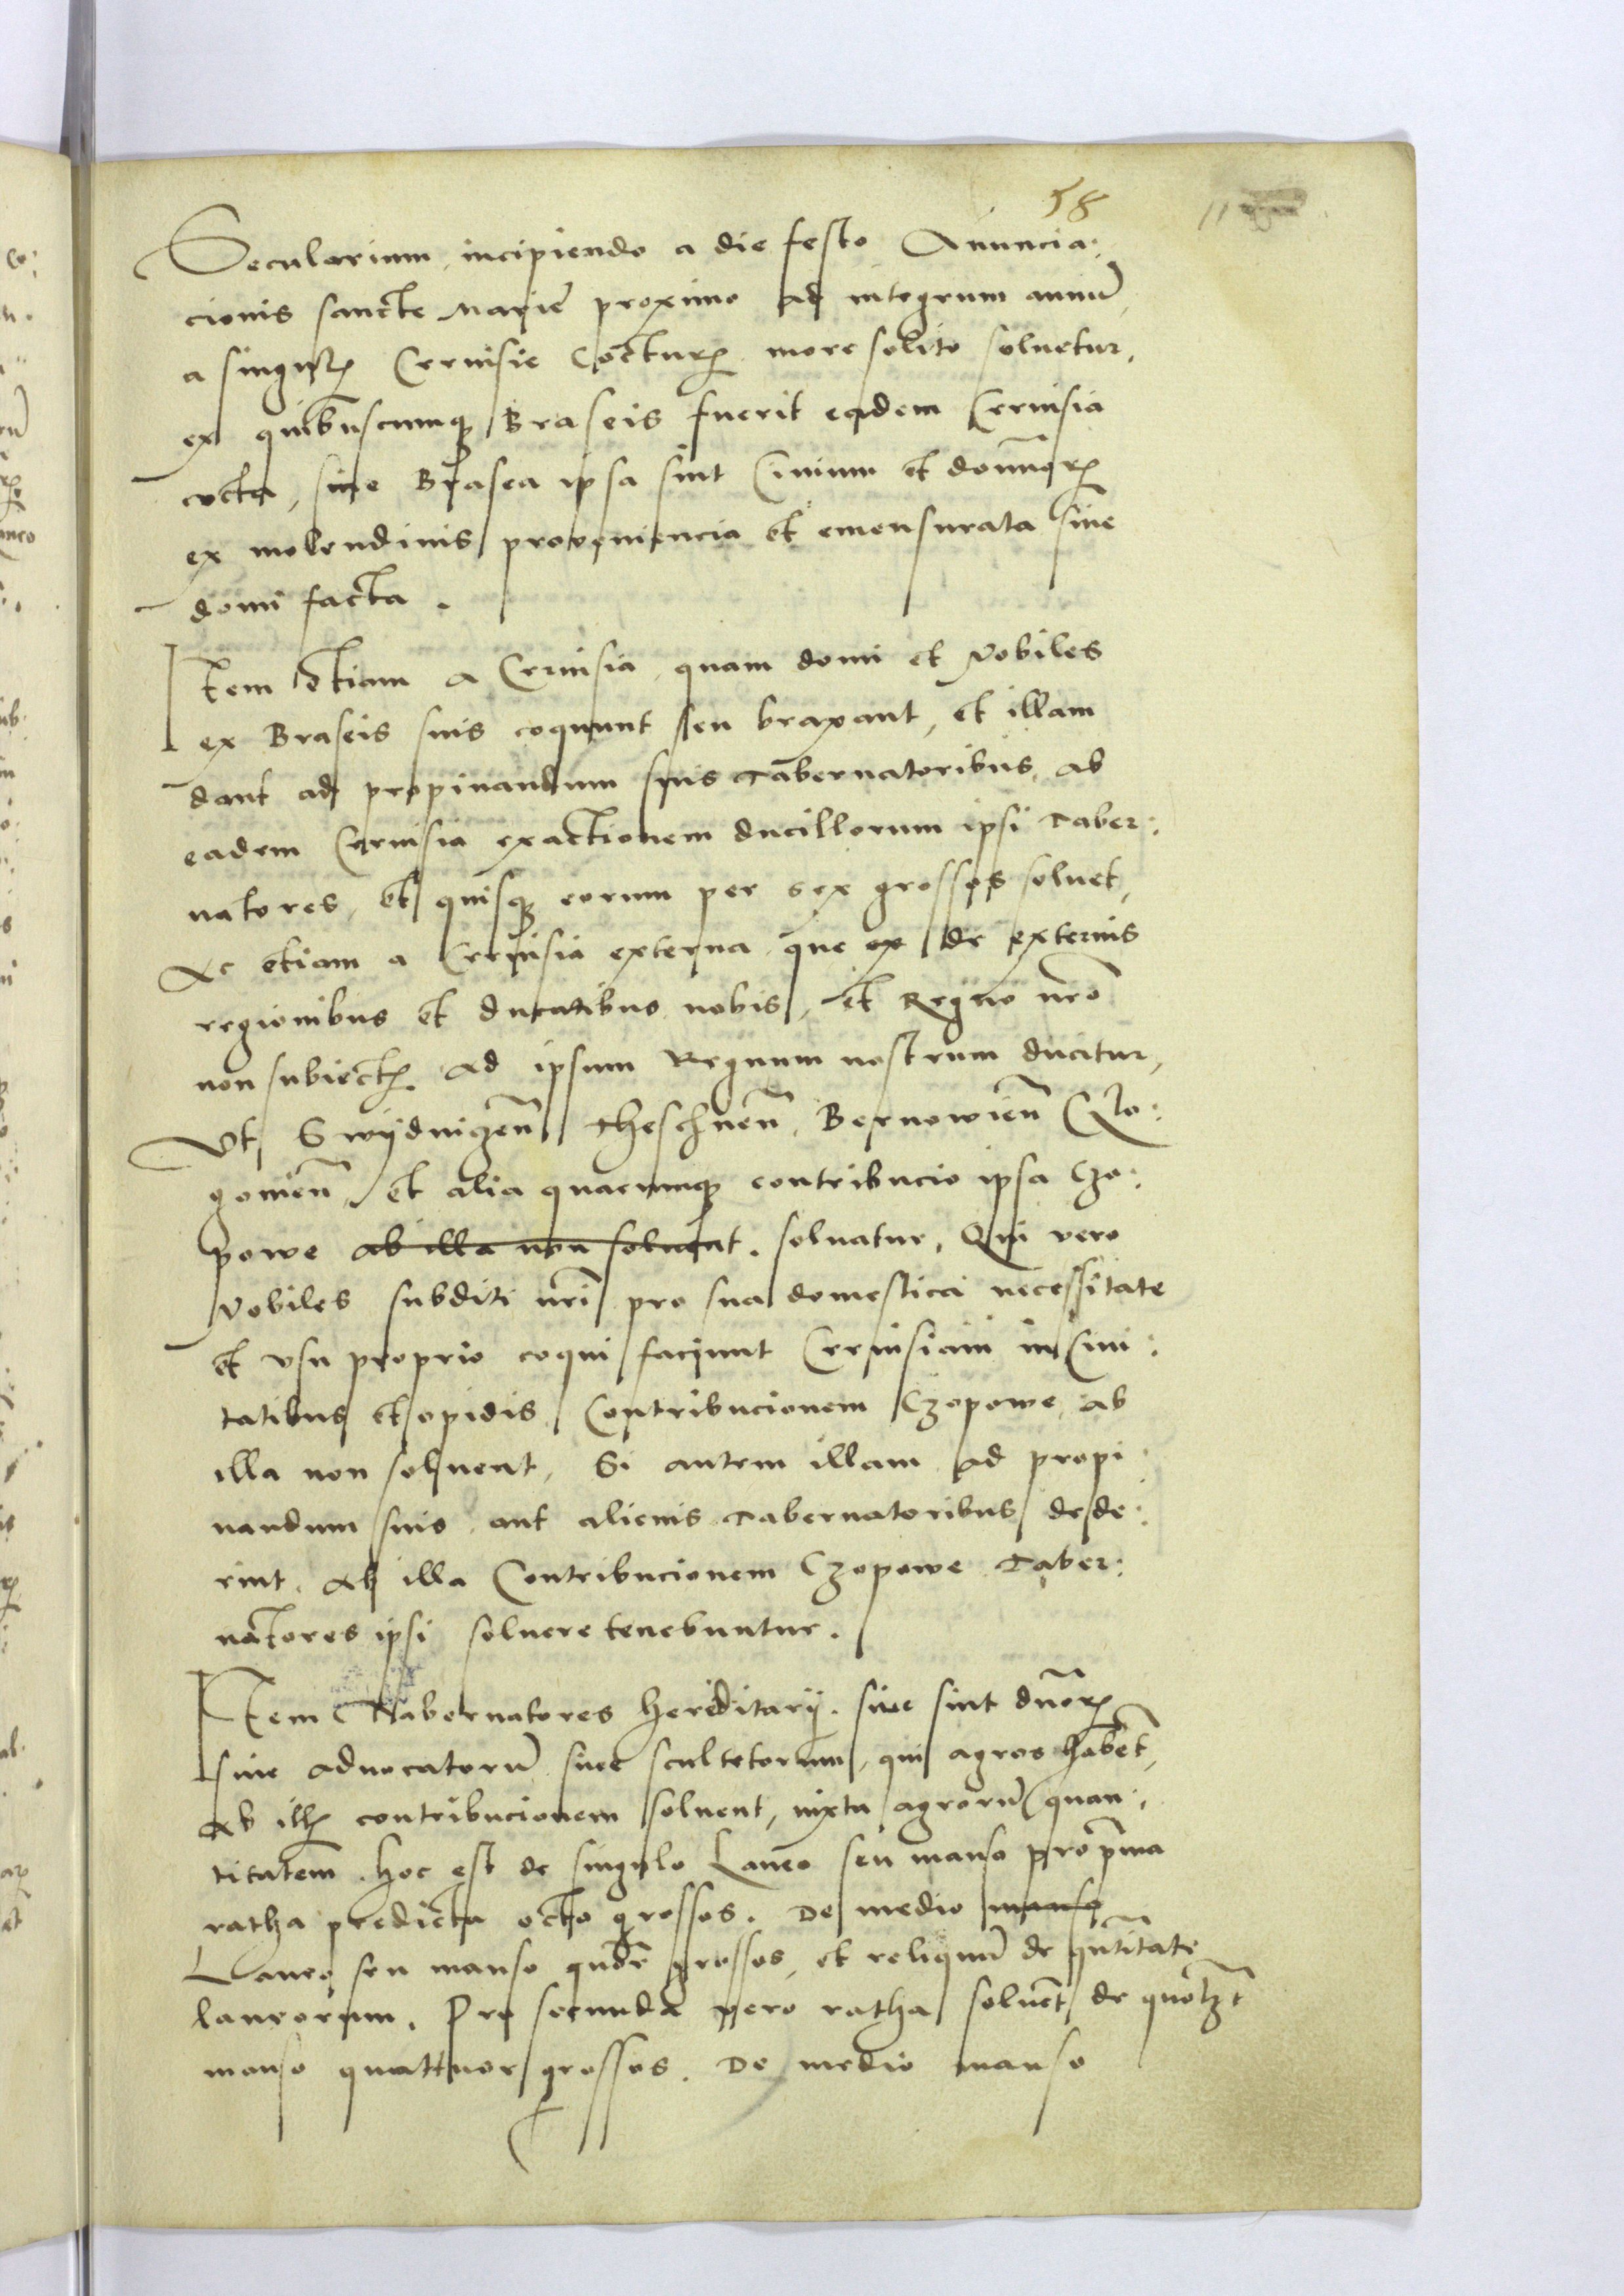 58
Secularium incipiendo a die festo Anuncia:
cionis sancte Marie proximo ad integrum annũ
a singulꝝ Cervisie Cocturꝝ more solito solvetur,
ex quibuscumqꝫ Braseis fuerit eadem Cervisia
cocta, sive Brasea ipsa sint Civium et dominoꝝ
ex molendinis proveniencia et emensurata sive
domi facta.
Item etiam a Cervisia, quam domi et Nobiles
ex Braseis suis coquunt seu braxant, et illam
dant ad propinandum suis Tabernatoribus, ab
eadem Cervisia exactionem ducillorum ipsi Taber:
natores, et quisqꝫ eorum per sex grossos solvet,
Ac etiam a Cervisia externa que ex de externis
regionibus et ducatibus nobis, et Regno nr̃o
non subiectꝭ ad ipsum Regnum nostrum ducitur,
Vt, Swÿdnigeñ Theschneñ, Bernowieñ Glo:
gowieñ, et alia quaecumqꝫ contribucio ipsa Czo:
powe ab illa non solvent. solvatur, Qui vero
Nobiles subditi nr̃i pro sua domestica necessitate
et vsu proprio coqui faciunt Cervisiam in Civi:
tatibus et opidis Contribucionem Czopowe ab
illa non solvent, Si autem illam ad propi:
nandum suis aut alienis Tabernatoribus dede:
rint. Ab illa Contribucionem Czopowe Taber:
natores ipsi solvere tenebuntur.
Item Tabernatores hereditarij. sive sint dñoꝝ
sive advocatorũ sive scultetorum, qui agros habẽt,
Ab illꝭ contribucionem solvent, iuxta agrorũ quan:
titatem. hoc est de singulo Laneo seu manso pro p̃ma
ratha predicta octo grossos. De medio manso
Laneo seu manso quatuor grossos, et reliquũ de qũtitate
laneorum. Pro secunda vero ratha solvẽt de quolʒt
manso quattuor grossos. De medio manso